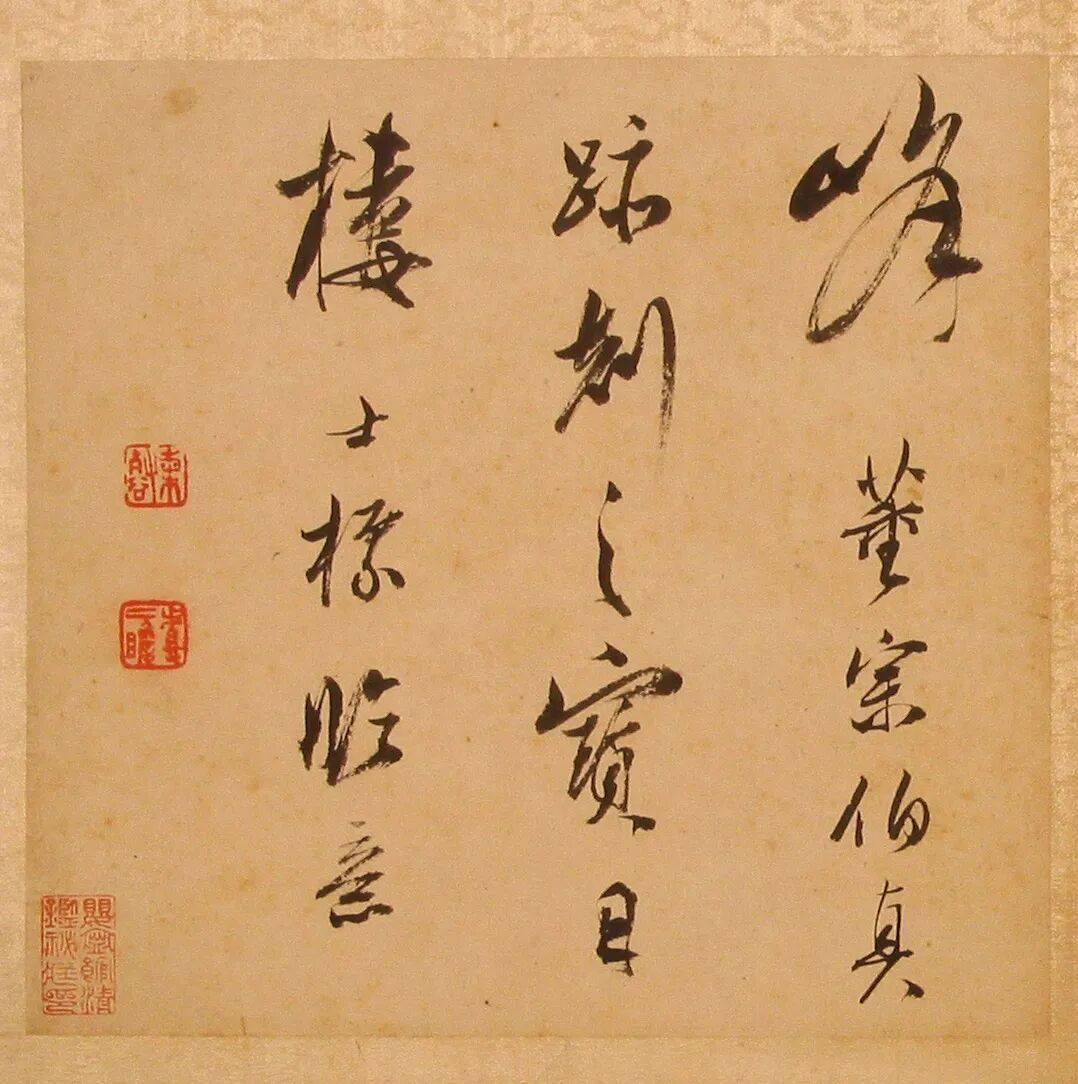 峰 董宗伯真
跡刻之寶日
樓 士標臨意